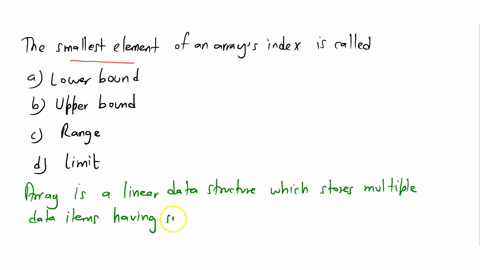 The smallest element of an array's index is called
a) Lower bound
b) Upper bound
c) Range
d) limit
Array is a linear data structure which stores multiple
data items having